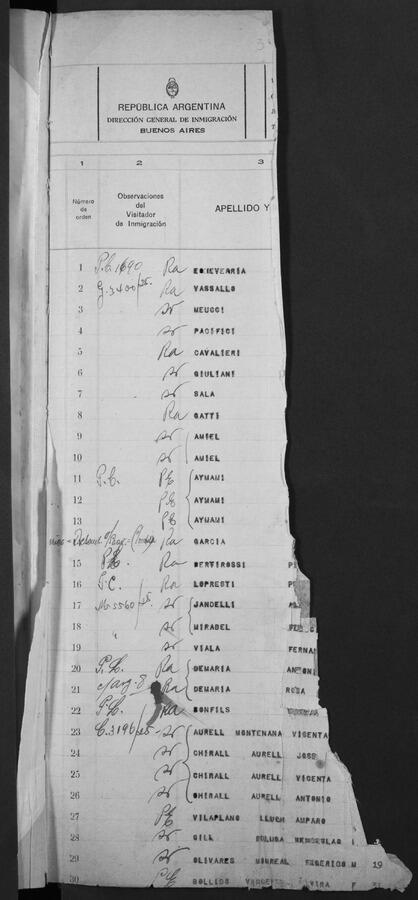 3
REPÚBLICA ARGENTINA
DIRECCIÓN GENERAL DE INMIGRACIÓN
BUENOS AIRES
1 2 3
Número de orden Observaciones del Visitador de Inmigración APELLIDO Y
1 P.C. 1690 Ra ECHEVERRIA
2 G. 3400/25. Ra VASSALLO
3 sr MEUCCI
4 sr PACIFICI
5 Ra CAVALIERI
6 sr GIULIANI
7 sr SALA
8 Ra GATTI
9 sr AMIEL
10 sr AMIEL
11 P.C. PE AYMAMI
12 PE AYMAMI
13 PE AYMAMI
Ra GARCIA
15 Ra BERTIROSSI
16 P.C. Ra LOPRESTI
17 M. 5560/25 sr JANDELLI
18 " sr MIRABEL
19 sr VIALA FERNA
20 Ra DEMARIA ANTONI
21 Ra DEMARIA ROSA
22 Ra BONFILS
23 C. 3196/25 - sr AURELL MONTENANA VICENTA
24 sr CHIRALL AURELL JOSE
25 sr CHIRALL AURELL VICENTA
26 sr CHIRALL AURELL ANTONIO
27 PE VILAPLANO LLUCH AMPARO
28 sr GILL
29 sr OLIVARES MONREAL 19
30